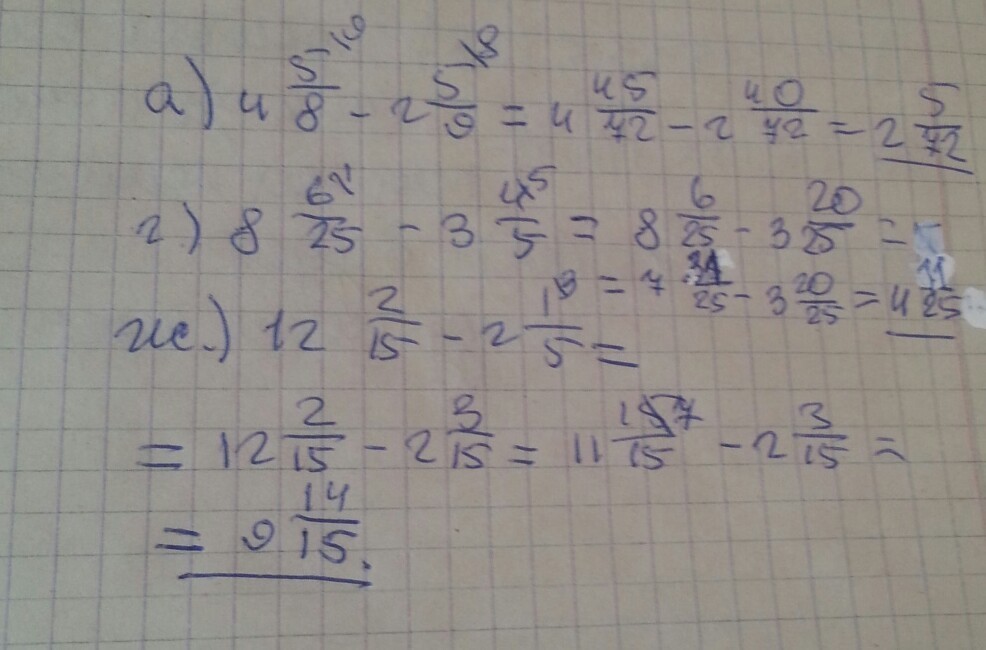 а) 4 5/8 \9 - 2 5/9 \8 = 4 45/72 - 2 40/72 = 2 5/72
г) 8 6/25 \1 - 3 4/5 \5 = 8 6/25 - 3 20/25 =
= 7 31/25 - 3 20/25 = 4 11/25
ж.) 12 2/15 - 2 1/5 =
= 12 2/15 - 2 3/15 = 11 17/15 - 2 3/15 =
= 9 14/15.